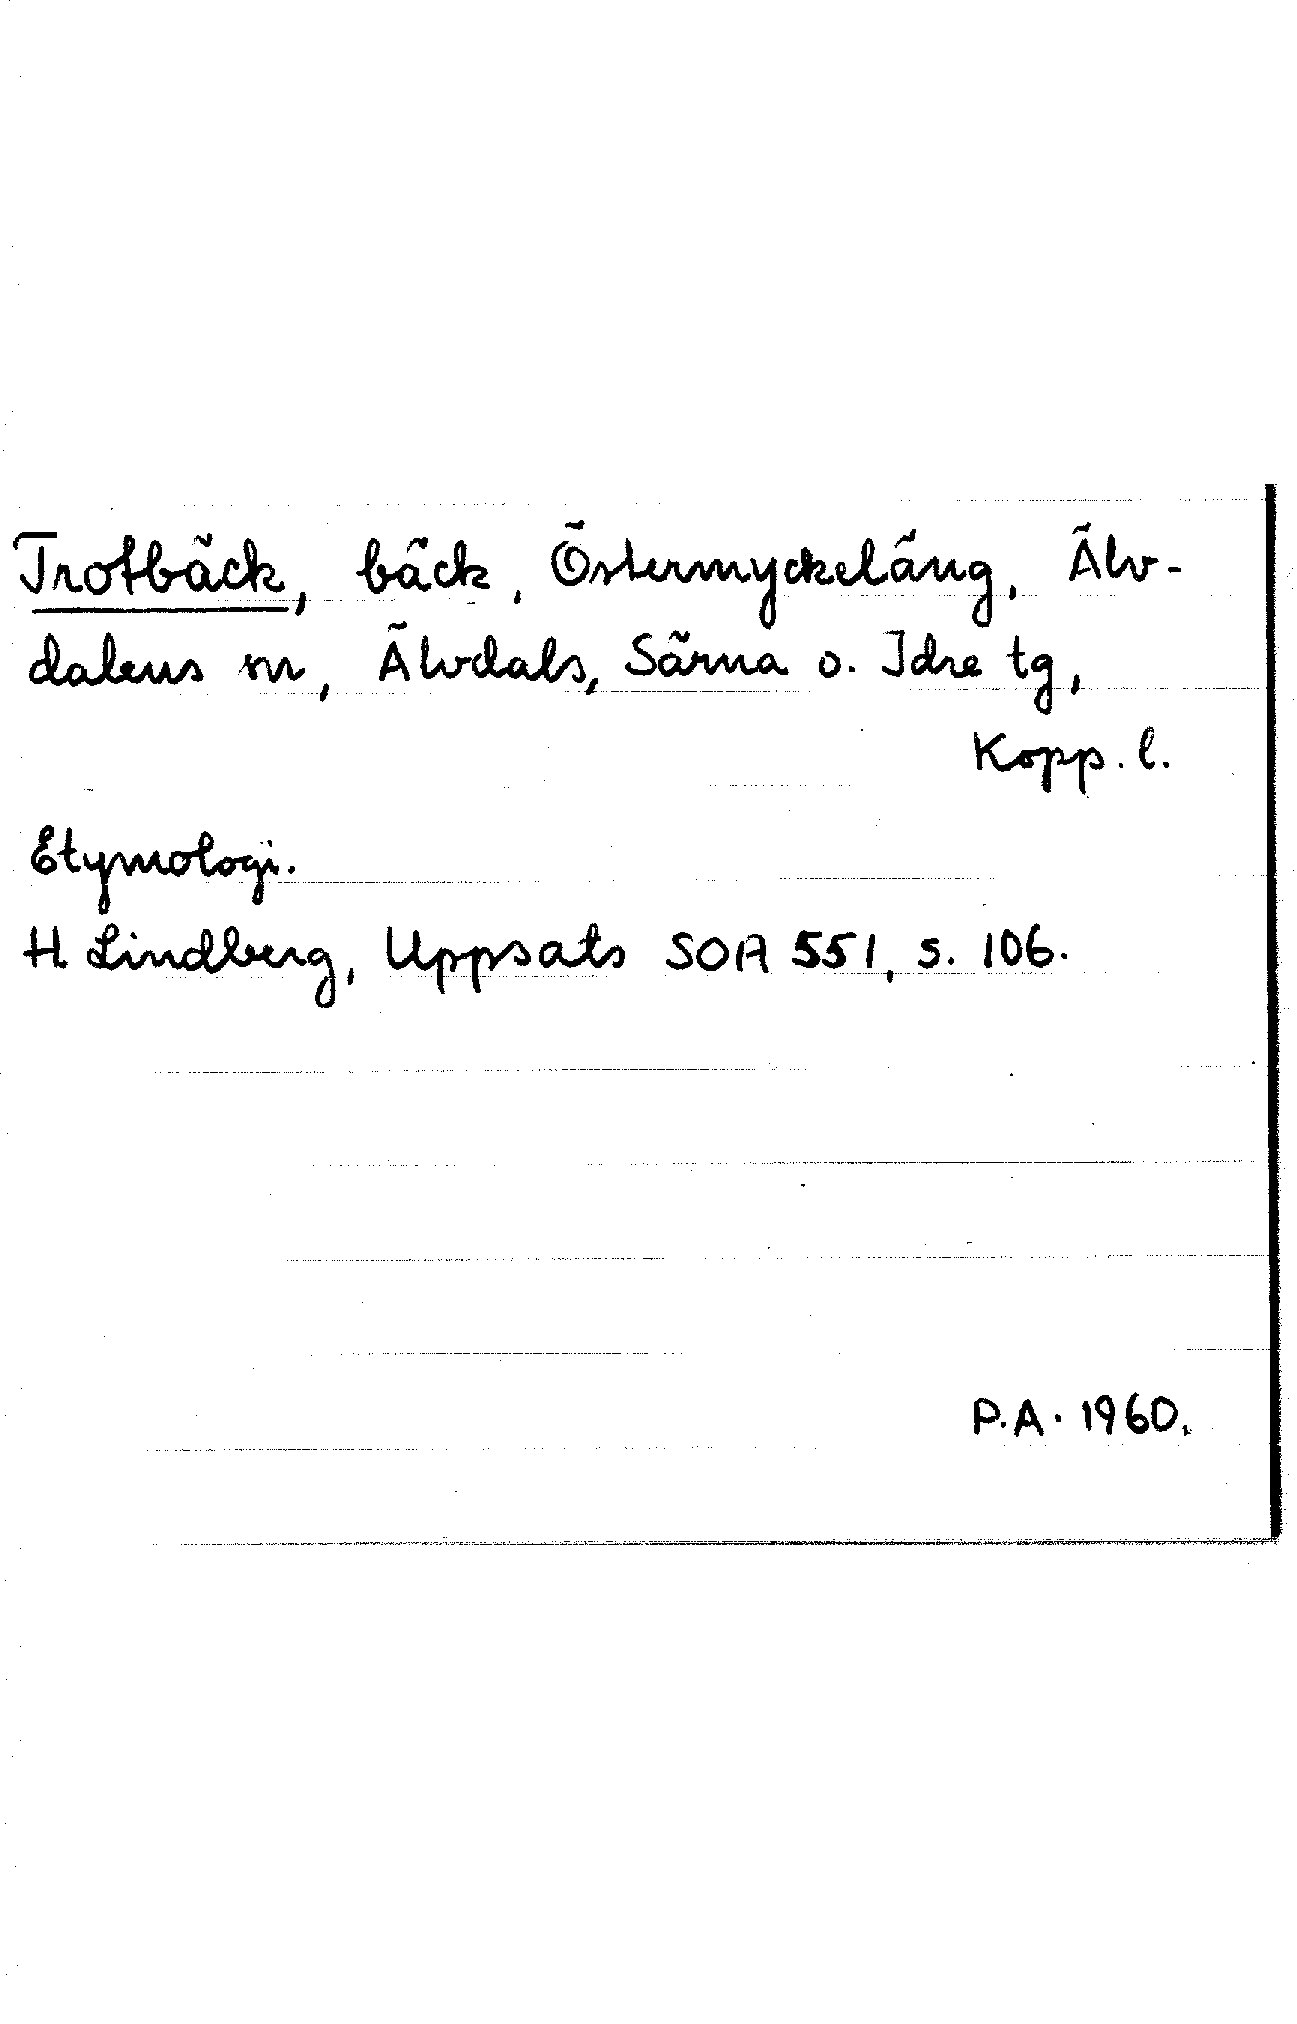 Trotbäck, bäck, Östermyckeläng, Älv-
dalens sn, Älvdals, Särna o. Idre tg,
Kopp. l.
Etymologi.
H Lindberg, Uppsats SOA 551, s. 106.
P.A. 1960.